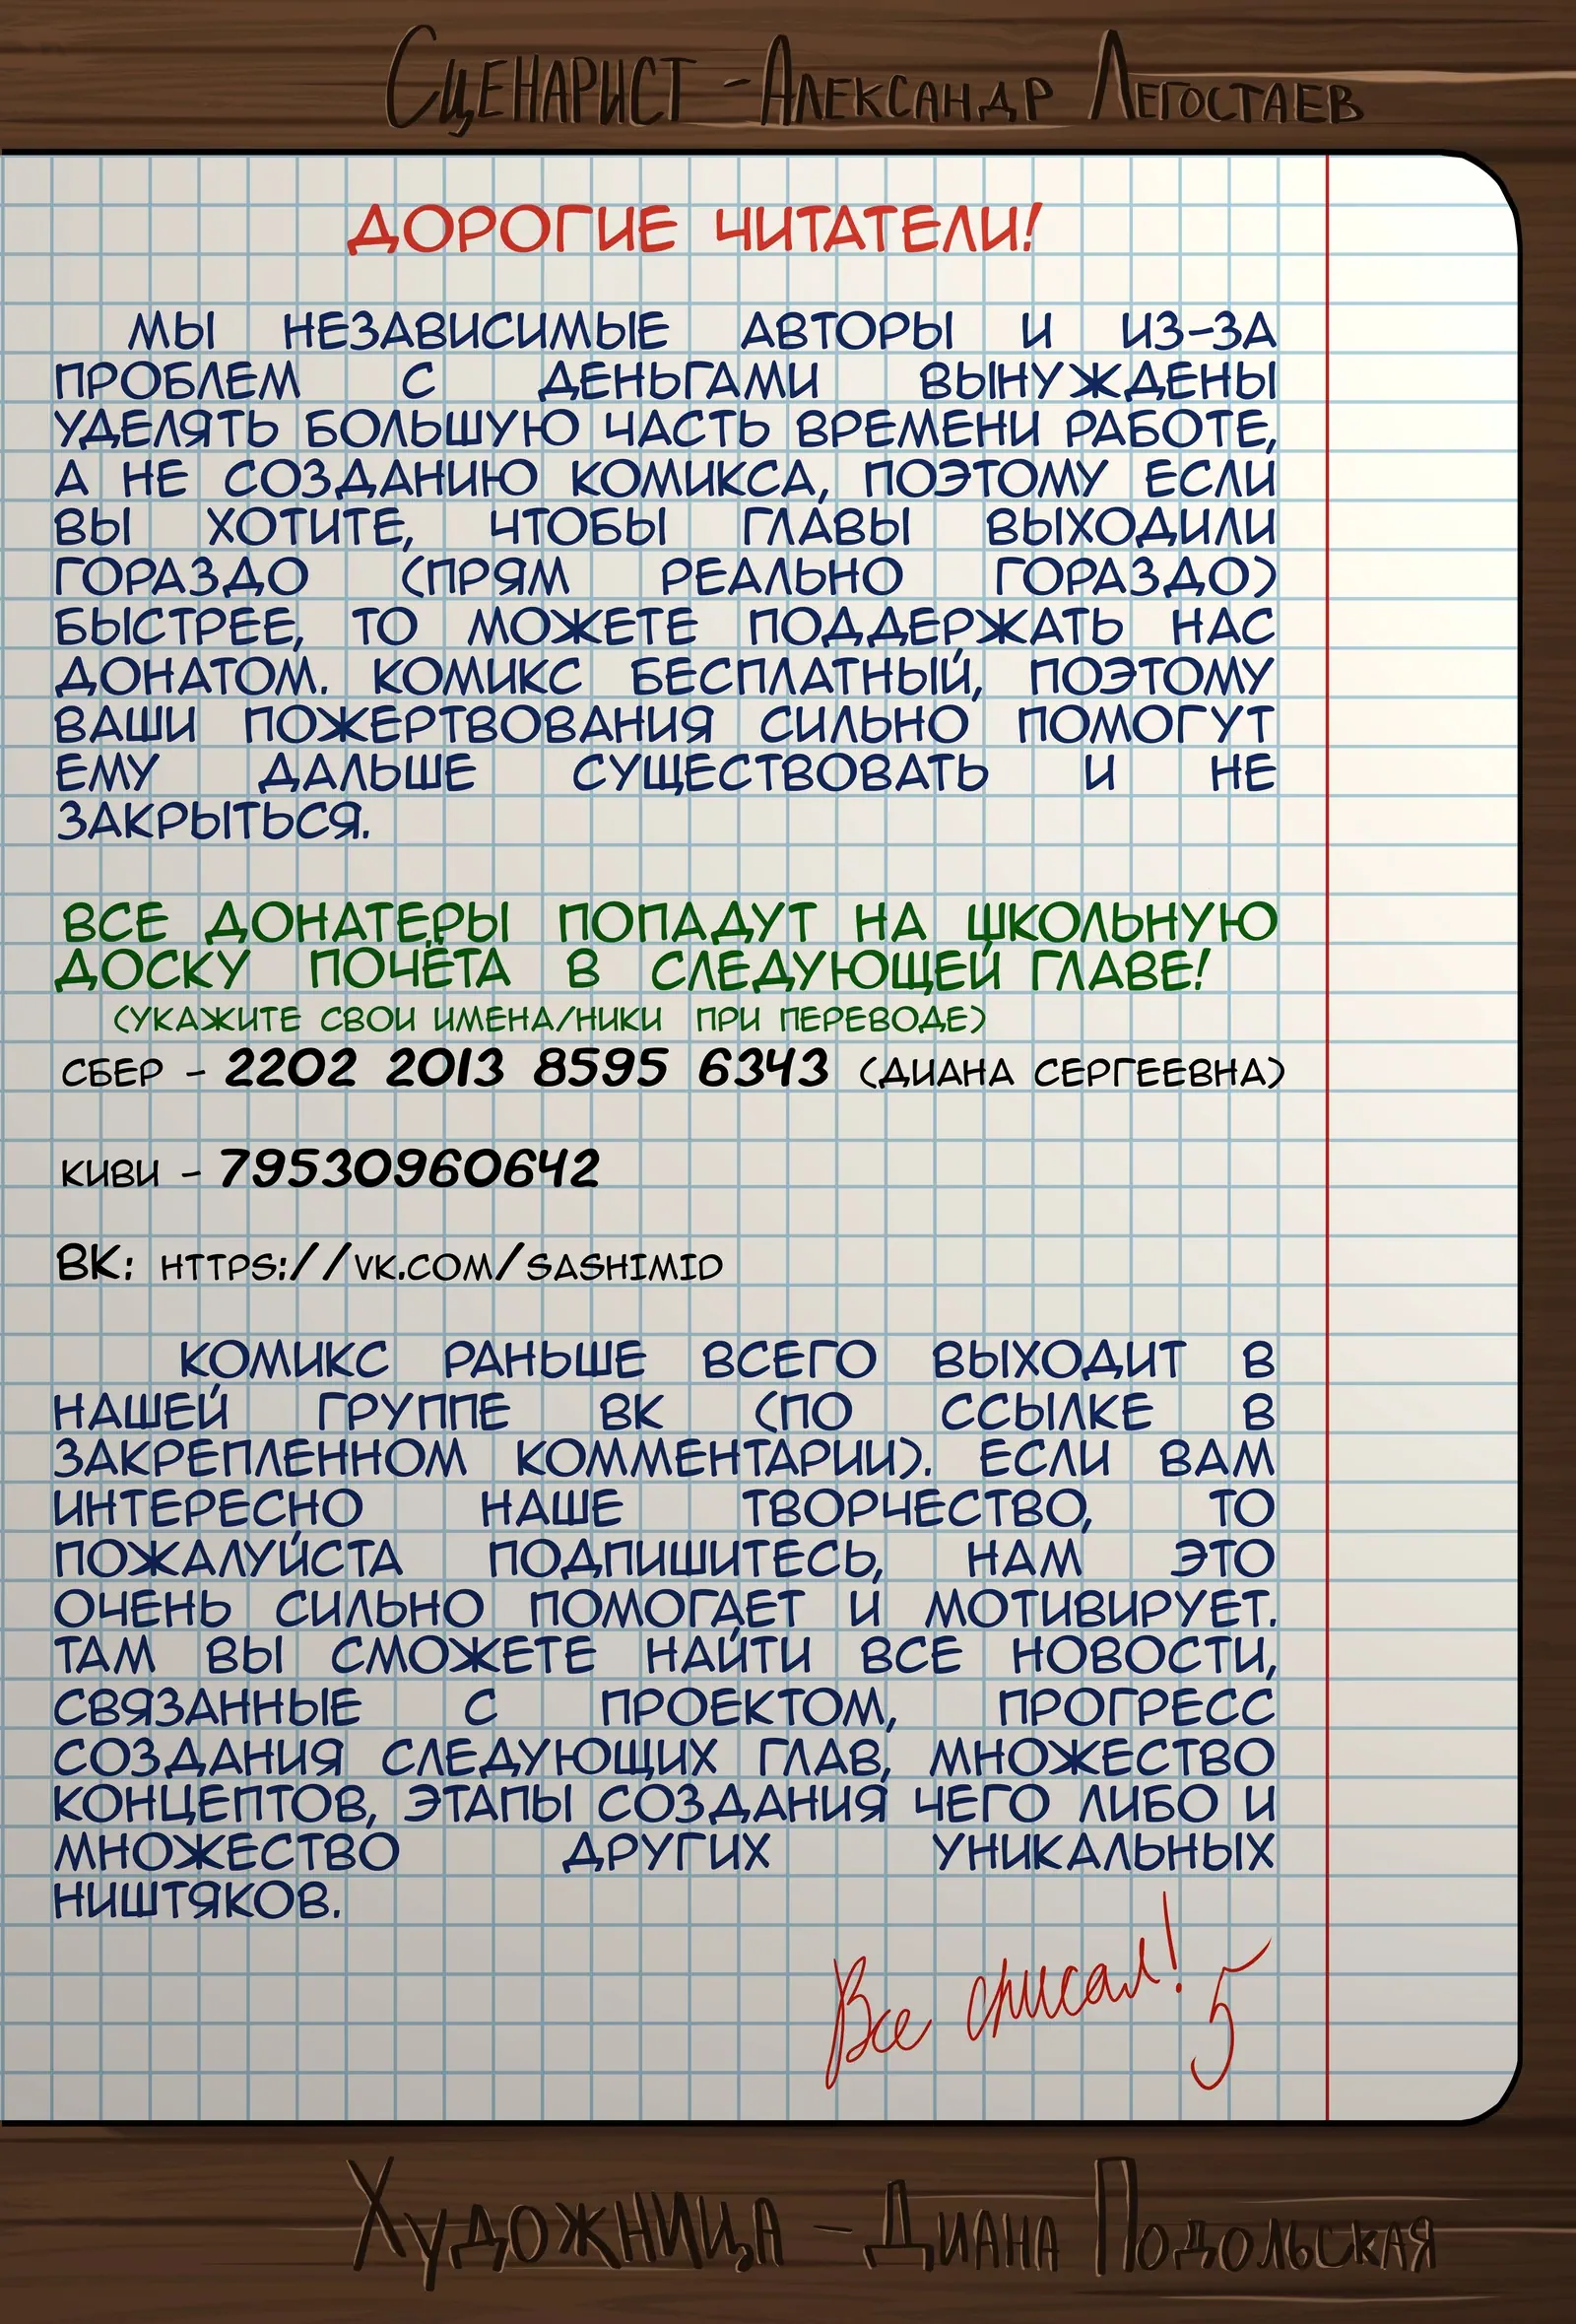 Сценарист - Александр Легостаев
ДОРОГИЕ ЧИТАТЕЛИ!
МЫ НЕЗАВИСИМЫЕ АВТОРЫ И ИЗ-ЗА
ПРОБЛЕМ С ДЕНЬГАМИ ВЫНУЖДЕНЫ
УДЕЛЯТЬ БОЛЬШУЮ ЧАСТЬ ВРЕМЕНИ РАБОТЕ,
А НЕ СОЗДАНИЮ КОМИКСА, ПОЭТОМУ ЕСЛИ
ВЫ ХОТИТЕ, ЧТОБЫ ГЛАВЫ ВЫХОДИЛИ
ГОРАЗДО (ПРЯМ РЕАЛЬНО ГОРАЗДО)
БЫСТРЕЕ, ТО МОЖЕТЕ ПОДДЕРЖАТЬ НАС
ДОНАТОМ. КОМИКС БЕСПЛАТНЫЙ, ПОЭТОМУ
ВАШИ ПОЖЕРТВОВАНИЯ СИЛЬНО ПОМОГУТ
ЕМУ ДАЛЬШЕ СУЩЕСТВОВАТЬ И НЕ
ЗАКРЫТЬСЯ.
ВСЕ ДОНАТЕРЫ ПОПАДУТ НА ШКОЛЬНУЮ
ДОСКУ ПОЧЁТА В СЛЕДУЮЩЕЙ ГЛАВЕ!
(УКАЖИТЕ СВОИ ИМЕНА/НИКИ ПРИ ПЕРЕВОДЕ)
СБЕР - 2202 2013 8595 6343 (ДИАНА СЕРГЕЕВНА)
КИВИ - 79530960642
ВК: HTTPS://VK.COM/SASHIMID
КОМИКС РАНЬШЕ ВСЕГО ВЫХОДИТ В
НАШЕЙ ГРУППЕ ВК (ПО ССЫЛКЕ В
ЗАКРЕПЛЕННОМ КОММЕНТАРИИ). ЕСЛИ ВАМ
ИНТЕРЕСНО НАШЕ ТВОРЧЕСТВО, ТО
ПОЖАЛУЙСТА ПОДПИШИТЕСЬ, НАМ ЭТО
ОЧЕНЬ СИЛЬНО ПОМОГАЕТ И МОТИВИРУЕТ.
ТАМ ВЫ СМОЖЕТЕ НАЙТИ ВСЕ НОВОСТИ,
СВЯЗАННЫЕ С ПРОЕКТОМ, ПРОГРЕСС
СОЗДАНИЯ СЛЕДУЮЩИХ ГЛАВ, МНОЖЕСТВО
КОНЦЕПТОВ, ЭТАПЫ СОЗДАНИЯ ЧЕГО ЛИБО И
МНОЖЕСТВО ДРУГИХ УНИКАЛЬНЫХ
НИШТЯКОВ.
Все списал! 5
Художница - Диана Подольская